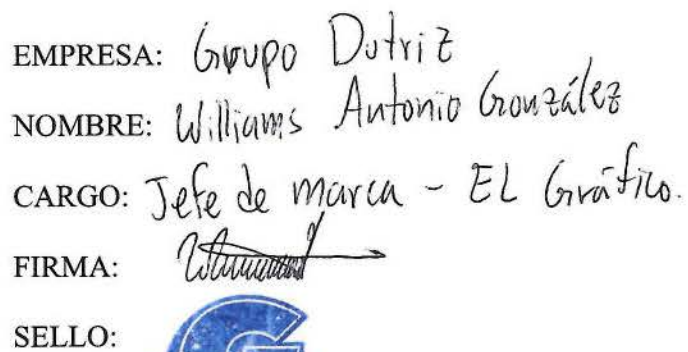 EMPRESA: Grupo Dutriz
NOMBRE: Williams Antonio González
CARGO: Jefe de marca - EL Gráfico.
FIRMA:
SELLO: